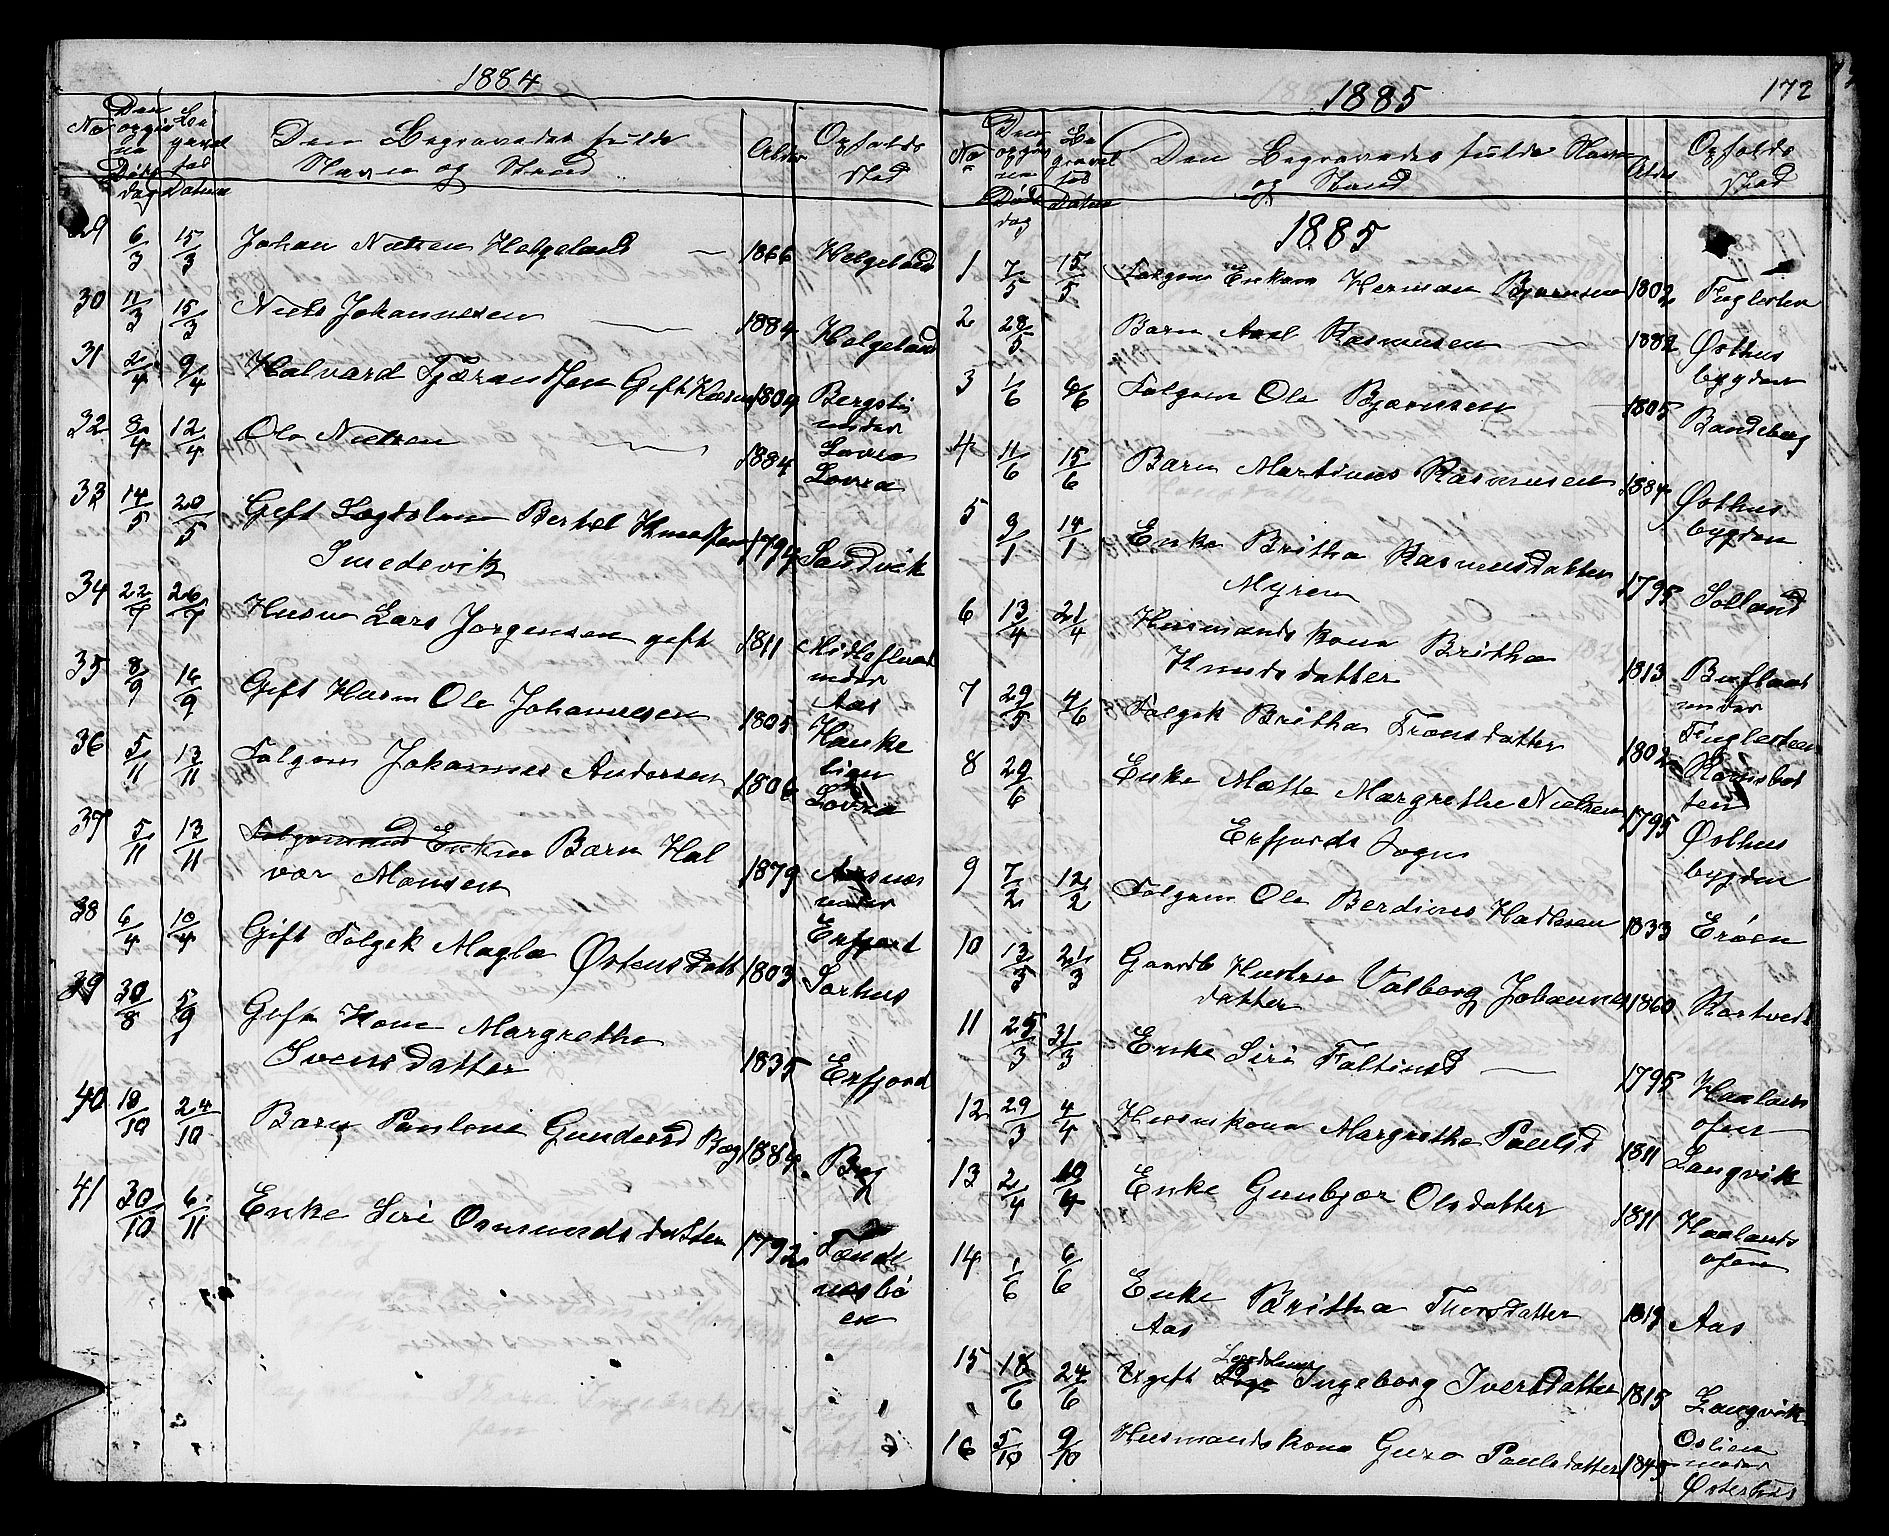 1884
No
Den Begravedes fulde
Navn og Stand
Alder
Opholds
sted
29 6/3 15/3 Johan Nielsen Helgeland — 1866 Helgeland
30 11/3 15/3 Niels Johannesen — 1884 Helgeland
31 2/4 9/4 Halvard Tjærandsen Gift 1809 Bergsti
under
Lovra
32 8/4 12/4 Ole Nielsen — 1884 Lovra
33 14/5 20/5 Gift Lægdslem Bertel Knudsen 1799 Sandvik
Smedevik
34 22/7 26/7 Husm Lars Jørgensen gift 1811
under
Aas
35 8/9 16/9 Gift Husm Ole Johannesen 1805 Hauke
lien
36 5/11 13/11 Folgem Johannes Andersen 1806 Lovra
37 5/11 13/11 Folgemand Enkem Barn Hal
vor Monsen 1879 Aarnæs
under
Erfjord
38 6/4 10/4 Gift Folgek Magla Østensdatt 1803 Sørhus
39 30/8 5/9 Gift Kone Margrethe
Svensdatter 1835 Erfjord
40 18/10 24/10 Barn Pauline Gundersd Bøg 1884 Bøg
41 30/10 6/11 Enke Siri Osmundsdatter 1792 Tænde
næsbø
en
1885
172
No
Den Begravedes fulde Navn
og Stand
Alder
Opholds
sted
1885
1 7/5 15/5 Folgem Enkem Herman Bjørnsen 1802 Fuglesten
2 28/5 Barn Axel Rasmusen — 1882 Østhus
bygden
3 1/6 6/6 Folgem Ole Bjørnsen 1805 Bandeberg
4 11/6 15/6 Barn Martinus Rasmusen 1884 Østhus
bygden
5 9/1 14/1 Enke Britha Rasmusdatter
Myren 1795 Solland
6 13/4 21/4 Husmands kone Britha
Knudsdatter 1813
under
Fuglesteen
7 29/5 4/6 Folgek Britha Tronsdatter 1802
8 29/6 Enke Mætte Margrethe Nielsen 1795 Østhus
Erfjords Sogn
bygden
9 7/2 12/2 Folgem Ole Berdines Hadlesen 1833 Erøen
10 13/3 21/3 Gaardb Hustru Valborg Johannes
datter 1860 Rartveit
11 25/3 31/3 Enke Siri Faltinsd — 1795 Haalands
ofen
12 29/3 4/4 Husmkone Margrethe Paulsd 1811 Langvik
13 2/4 10/4 Enke Gunbjør Olsdatter 1811 Haalands
ofen
14 1/6 6/6 Enke Britha Thorsdatter 1819 Aas
Aas
15 18/6 24/6 Ugift Lægdslem Ingeborg Iversdatter 1815 Langvik
16 5/10 9/10 Husmandskone Guro Paulsdatter 1843 Oslien
under
Østerhus